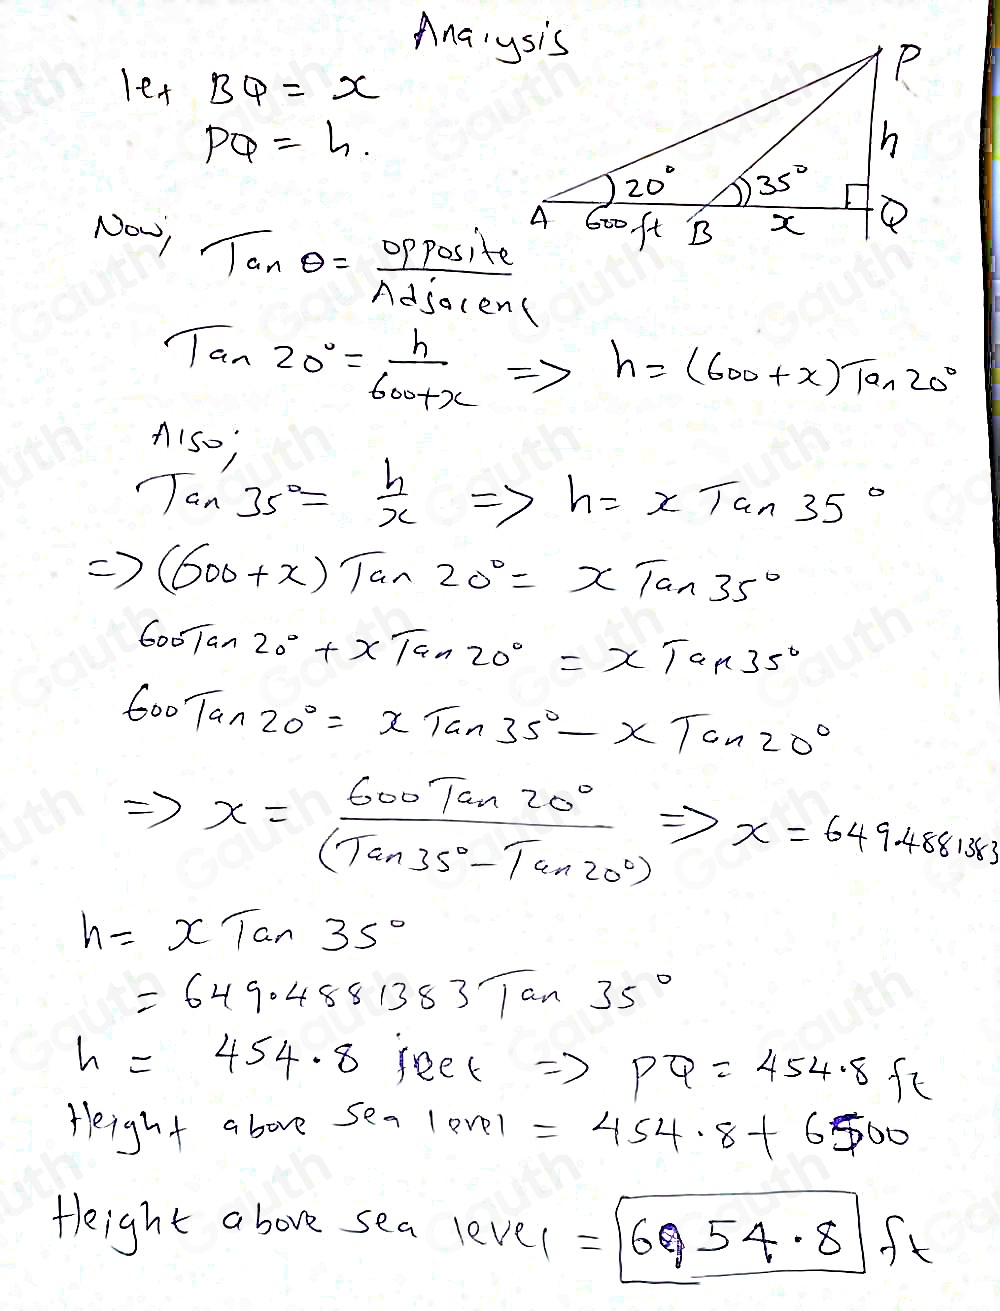 Analysis
let BQ = x
PQ = h.
P
h
20°
35°
A
600 ft
B
x
Q
Now,
Tan θ = opposite / Adjacent
Tan 20° = h / 600+x => h = (600+x) Tan 20°
Also;
Tan 35° = h / x => h = x Tan 35°
=> (600+x) Tan 20° = x Tan 35°
600 Tan 20° + x Tan 20° = x Tan 35°
600 Tan 20° = x Tan 35° – x Tan 20°
=> x = 600 Tan 20° / (Tan 35° – Tan 20°) => x = 649.4881383
h = x Tan 35°
= 649.4881383 Tan 35°
h = 454.8 feet => PQ = 454.8 ft
Height above sea level = 454.8 + 6500
Height above sea level = 6954.8 ft
Gauth